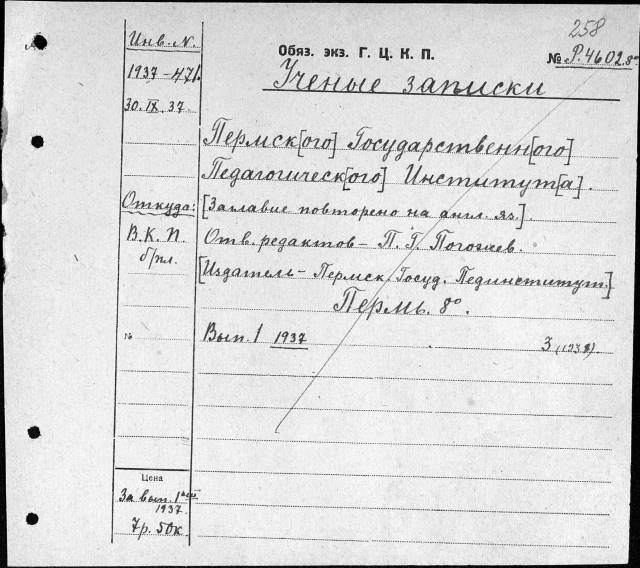 258
Инв. N.
Обяз. экз. Г. Ц. К. П.
№ Р.4602.8º
Ученые записки
1937-471.
30.IX.37.
Пермск[ого] Государственн[ого]
Педагогическ[ого] Институт[а].
Откуда:
[Заглавие повторено на англ. яз.].
В.К.П.
Отв. редактов - П. Г. Погожев.
б/пл.
[Издатель - Пермск. Госуд. Пединститут.]
Пермь. 8º.
№
Вып. 1 1937
3 (1938).
Цена
За вып. 1ый
1937.
7р. 50к.